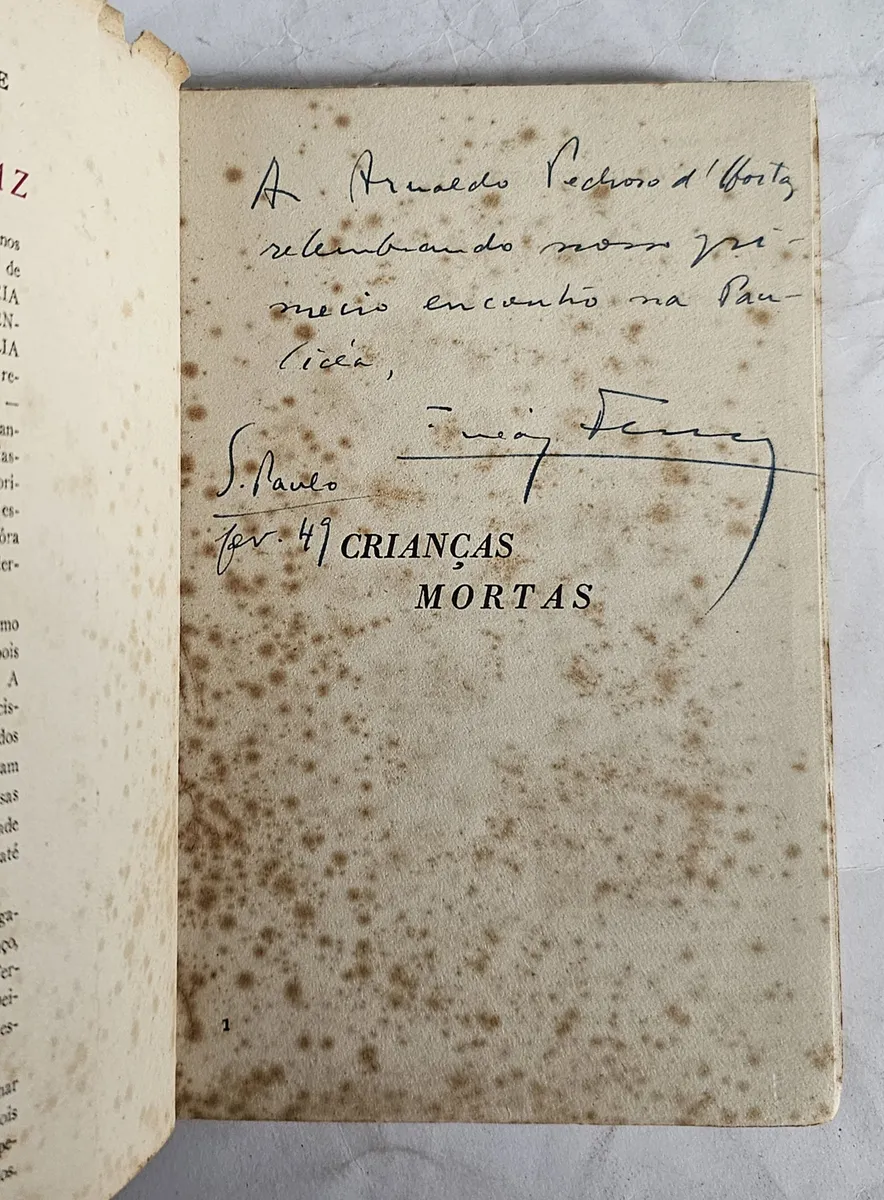 E
AZ
nos
de
CIA
EN-
LIA
re-
—
an-
as-
ori-
es-
óra
ter-
mo
pois
A
cis-
dos
am
sas
ade
até
ga-
ço,
Ter-
pei-
es-
nar
ois
pe-
os.
A Arnaldo Pedroso d'Horta,
relembrando nosso pri-
meiro encontro na Pau-
licéa,
Enéas Ferraz
S. Paulo
fev. 49
CRIANÇAS
MORTAS
1